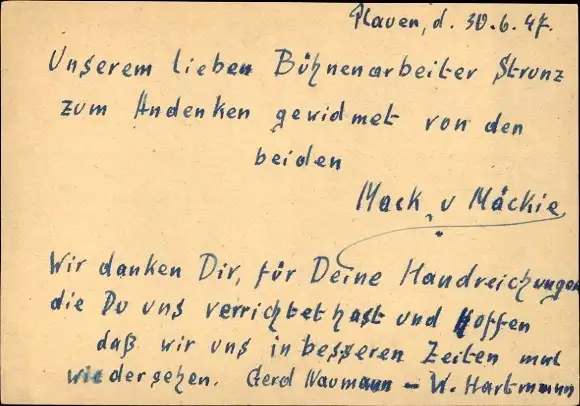 Plauen, d. 30.6.47.
Unserem lieben Bühnenarbeiter Strunz
zum Andenken gewidmet von den
beiden
Mack u Mäckie
Wir danken Dir, für Deine Handreichungen
die Du uns verrichtet hast und hoffen
daß wir uns in besseren Zeiten mal
wiedersehen. Gerd Naumann – W. Hartmann